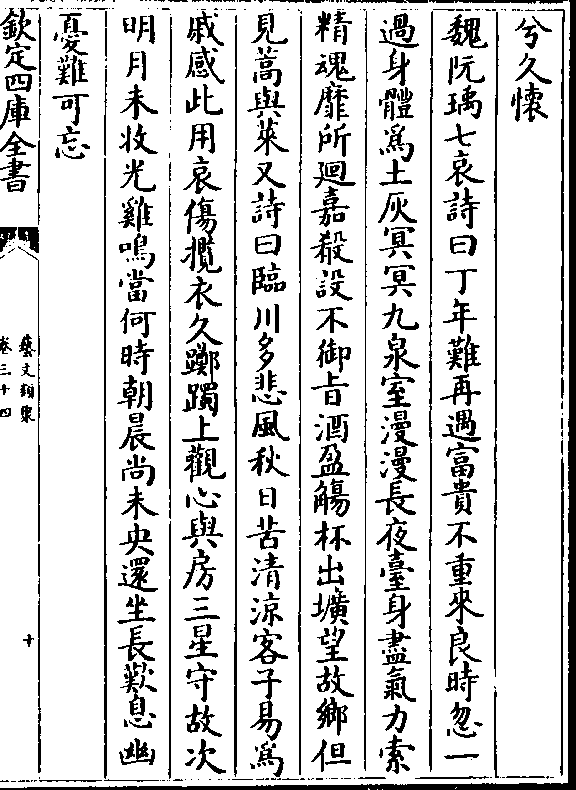 兮久懷
魏阮瑀七哀詩曰丁年難再遇富貴不重來良時忽一
過身體為土灰冥冥九泉室漫漫長夜臺身盡氣力索
精魂靡所廻嘉殽設不御旨酒盈觴杯出壙望故鄉但
見蒿與萊又詩曰臨川多悲風秋日苦清涼客子易為
戚感此用哀傷攬衣久躑躅上觀心與房三星守故次
明月未收光雞鳴當何時朝晨尚未央還坐長歎息幽
憂難可忘
欽定四庫全書
藝文類聚
卷三十四
十